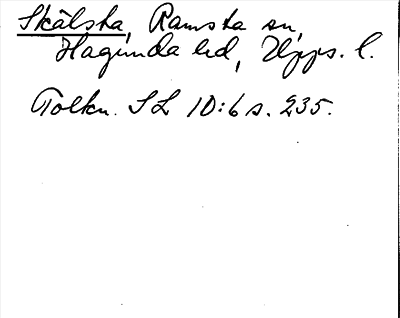 Skälsta, Ramsta sn,
Hagunda hd, Upps. l.
Tolkn. SL 10:6 s. 235.